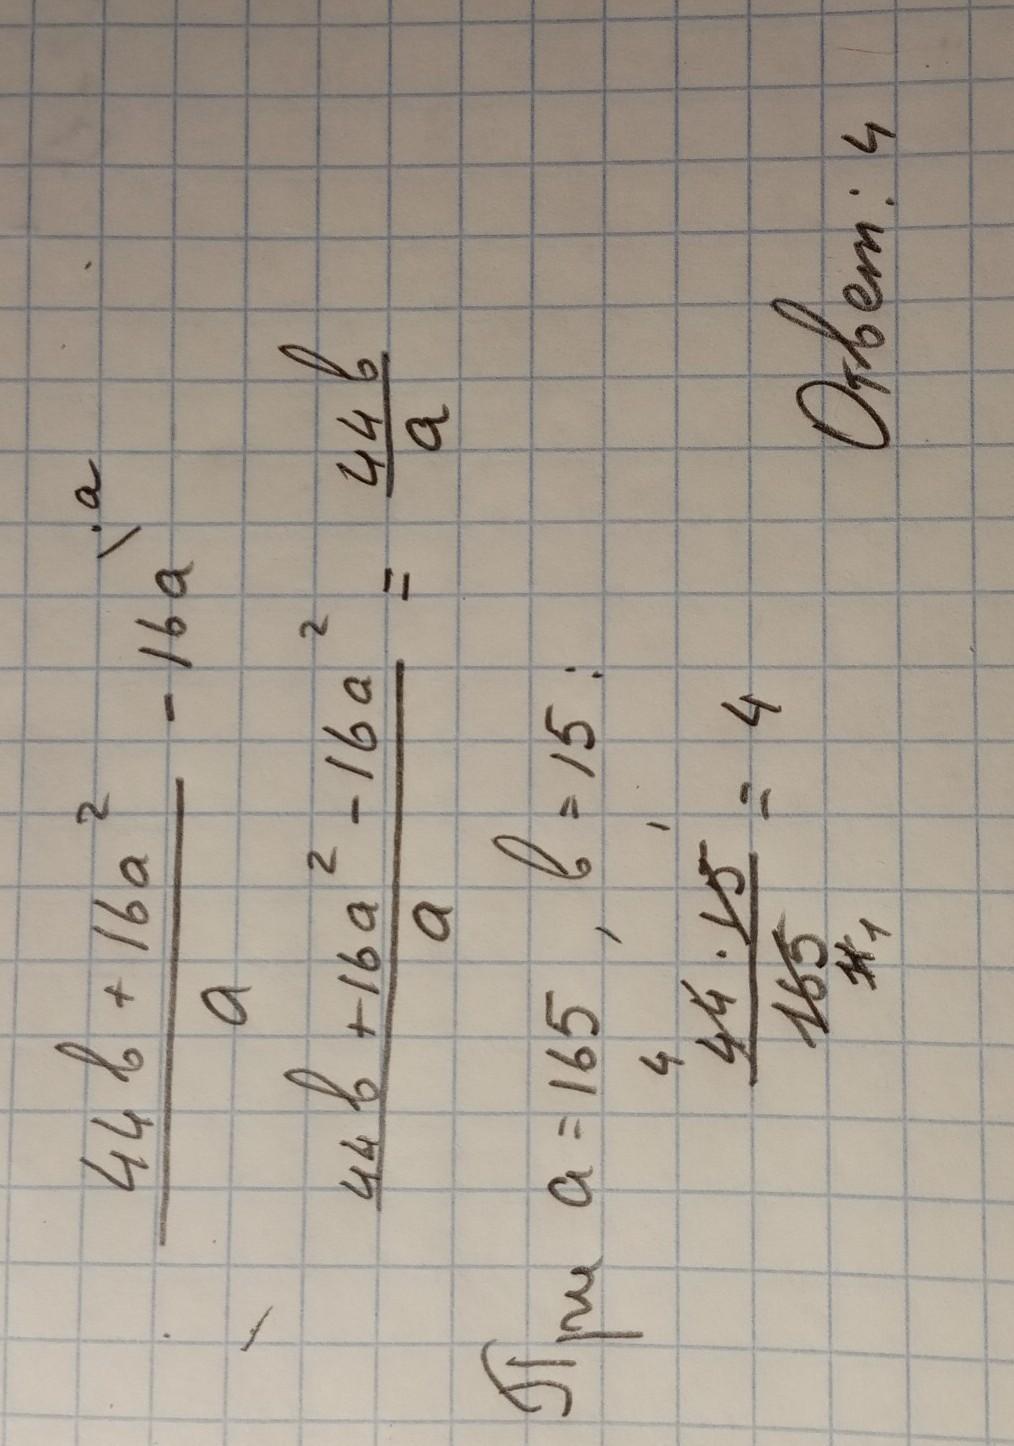 44b + 16a² / a - 16a \·a
44b + 16a² - 16a² / a = 44b / a
При a = 165, b = 15:
44 4 · 15 1 / 165 11 1 = 4
Ответ: 4